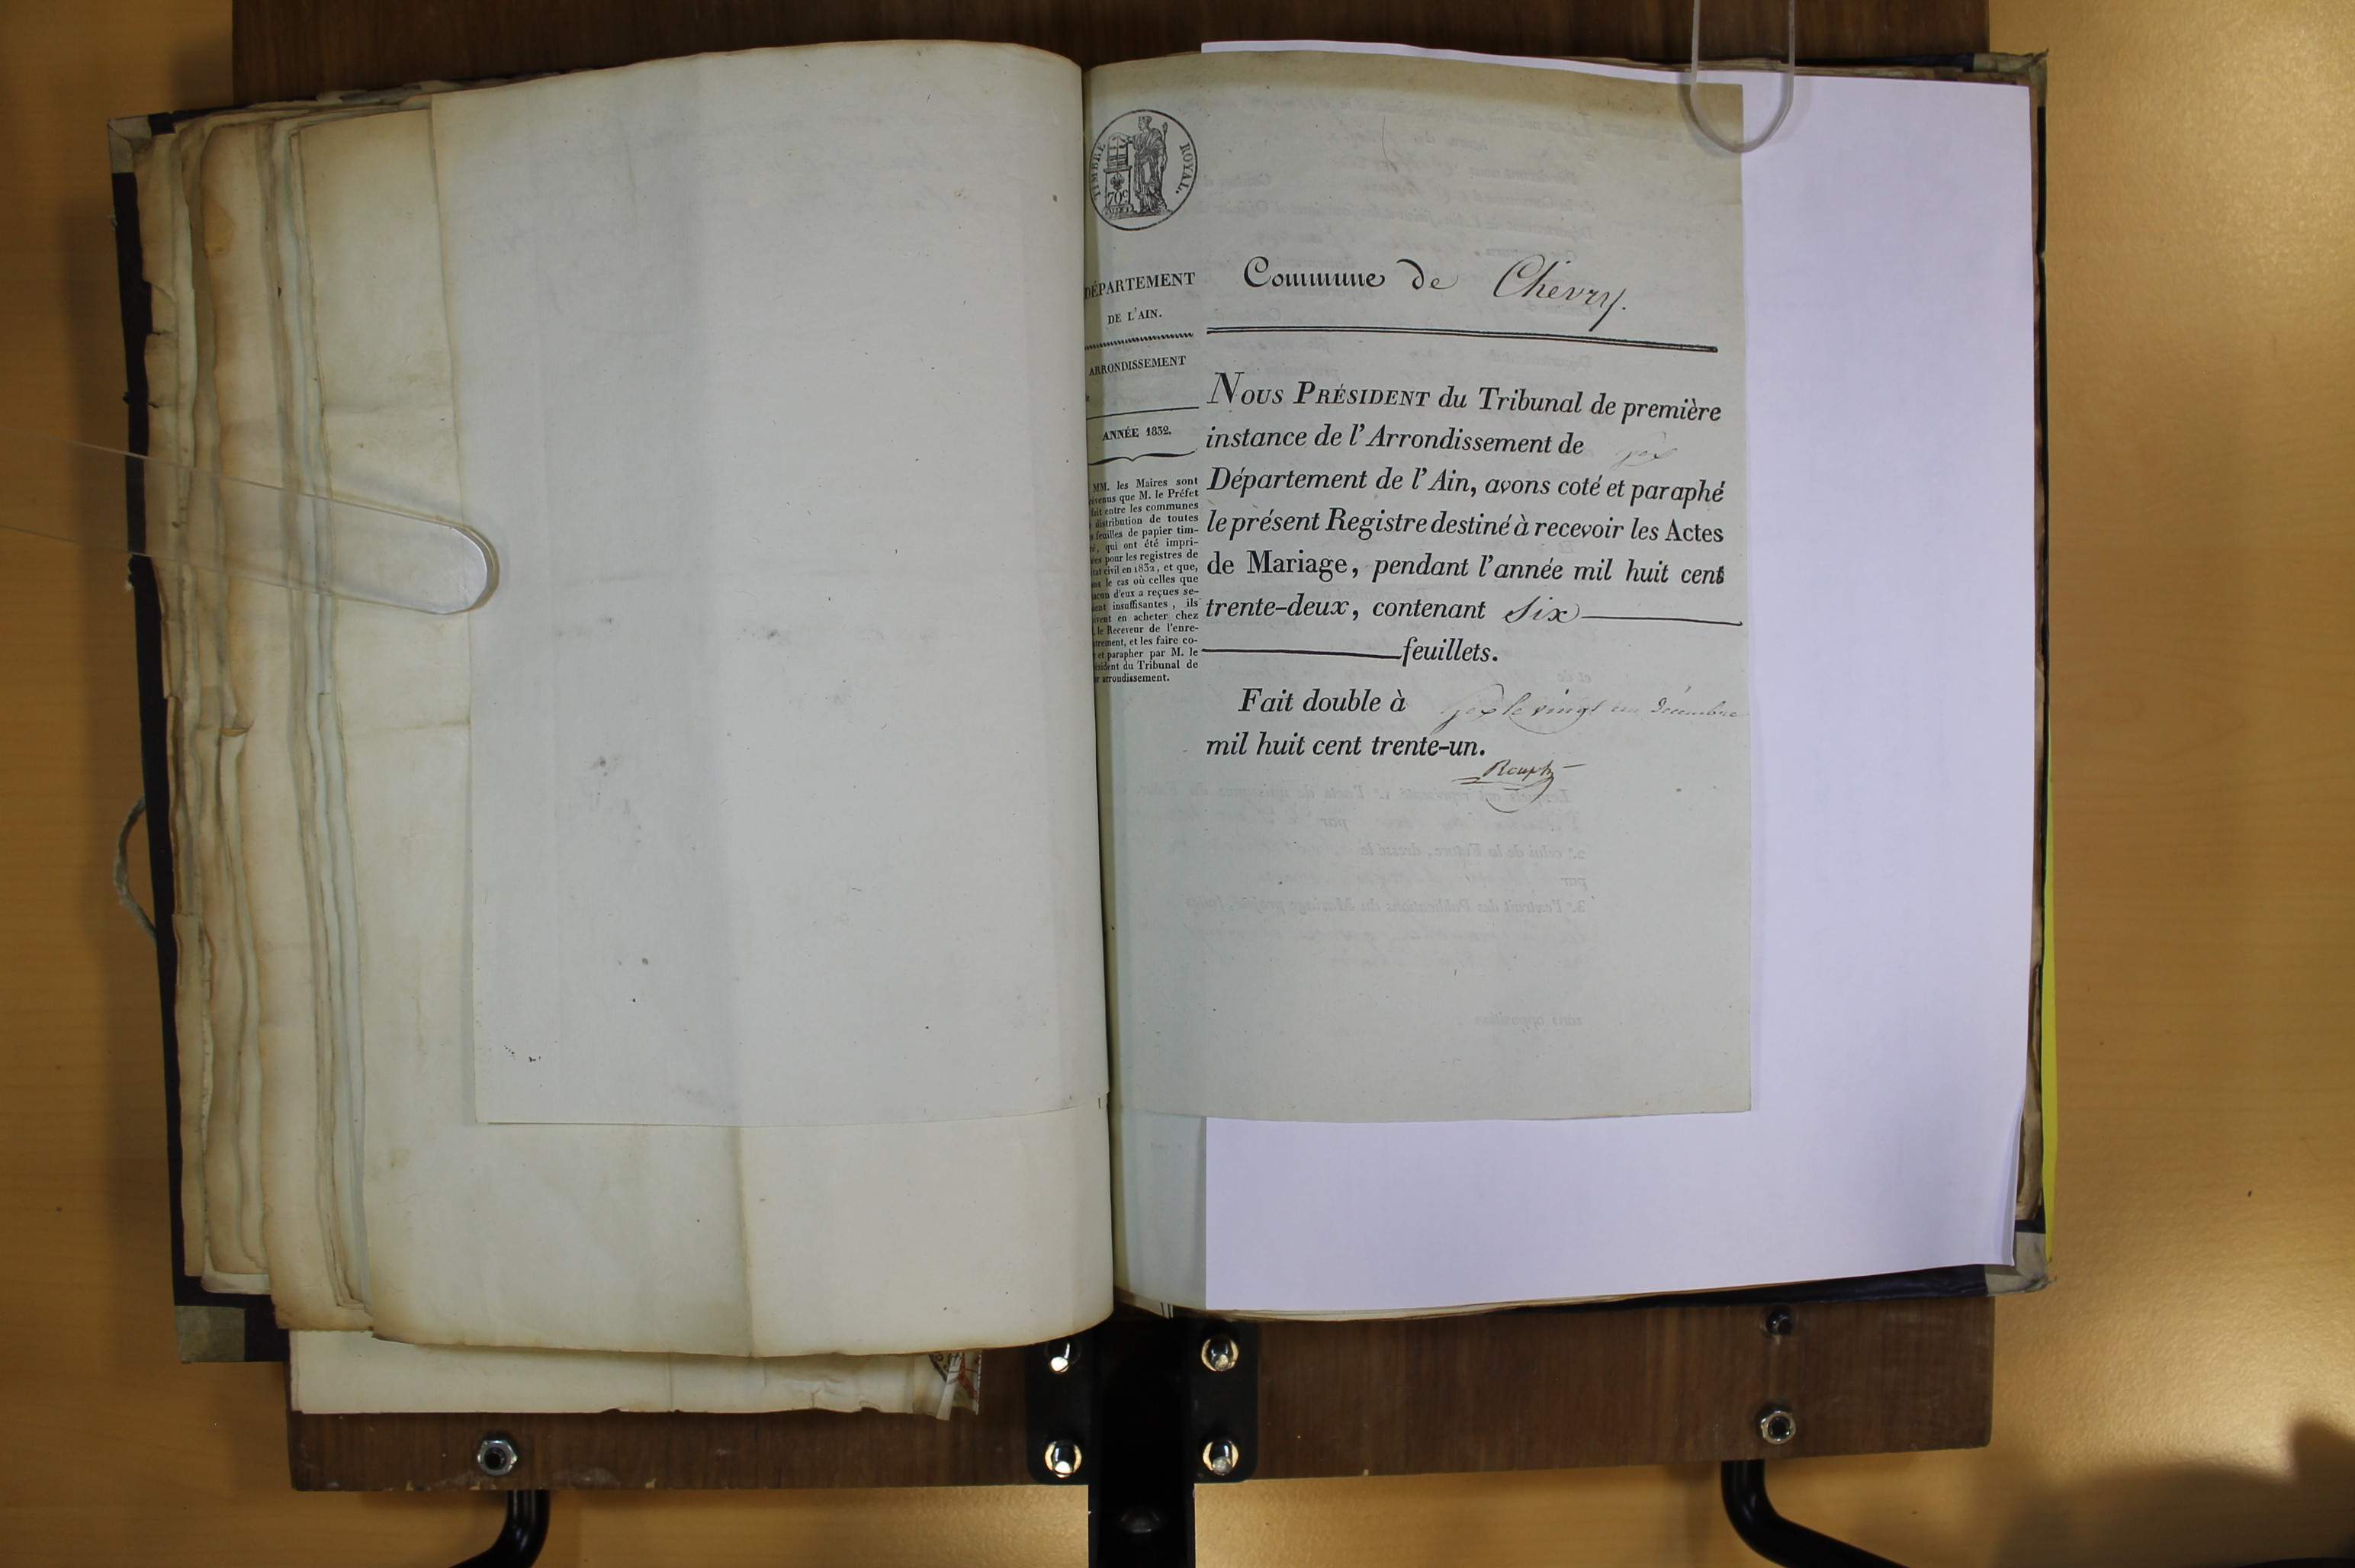 TIMBRE ROYAL.
70c
DÉPARTEMENT
DE L'AIN.
ARRONDISSEMENT
ANNÉE 1832.
MM. les Maires sont
que M. le Préfet
fait entre les communes
distribution de toutes
feuilles de papier tim-
qui ont été impri-
pour les registres de
civil en 1832, et que,
le cas où celles que
d'eux a reçues se-
insuffisantes, ils
en acheter chez
le Receveur de l'enre-
et les faire co-
et parapher par M. le
du Tribunal de
arrondissement.
Commune de Chevry.
NOUS PRÉSIDENT du Tribunal de première
instance de l'Arrondissement de gex
Département de l'Ain, avons coté et paraphé
le présent Registre destiné à recevoir les Actes
de Mariage, pendant l'année mil huit cent
trente-deux, contenant six
feuillets.
Fait double à gex le vingt un décembre
mil huit cent trente-un.